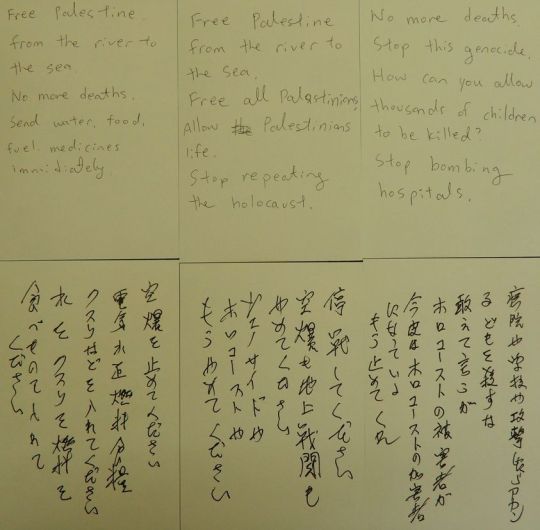 Free Palestine
from the river to
the sea.
No more deaths.
Send water, food,
fuel, medicines
immidiately.
Free Palestine
from the river to
the sea.
Free all Palastinians
Allow Palestinians
life.
Stop repeating
the holocaust.
No more deaths.
Stop this genocide.
How can you allow
thousands of children
to be killed?
Stop bombing
hospitals.
空爆を止めてください
電気水 燃料食糧
クスリなどを入れてください
水をクスリを燃料を
食べものを入れて
ください
停戦してください
空爆も地上戦闘も
やめてください
ジェノサイドや
ホロコーストや
もうやめてください
病院や学校や攻撃
子どもを殺すな
敢えて言うが
ホロコーストの被害者が
今度はホロコーストの加害者
になっている
もう止めてくれ